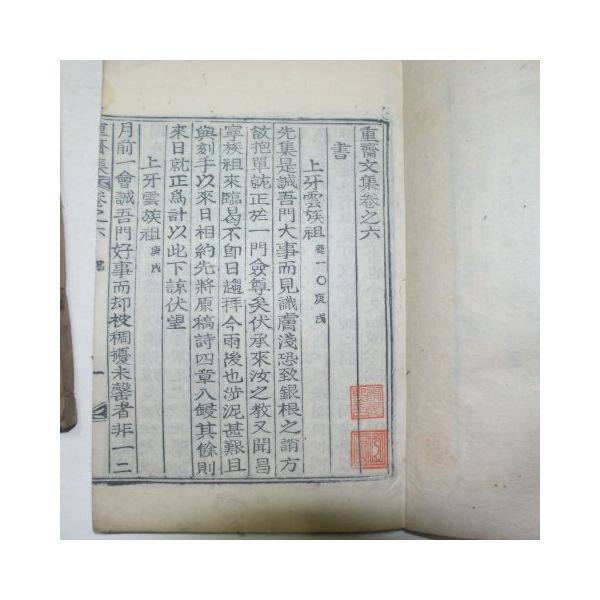 重齋文集卷之六
書
上牙雲族祖 一〇庚戌
先集是誠吾門大事而見識膚淺恐致銀根之誚方
敢抱單就正於一門僉尊矣伏承來汝之教又聞昌
寧族祖來臨曷不卽日趨拜今雨後也涉泥甚艱且
與刻手以來日相約先將原稿詩四章入鋟其餘則
來日就正爲計以此下諒伏望
上牙雲族祖 庚戌
月前一會誠吾門好事而却被稠擾未罄者非一二
重齋集 卷之六 書 一